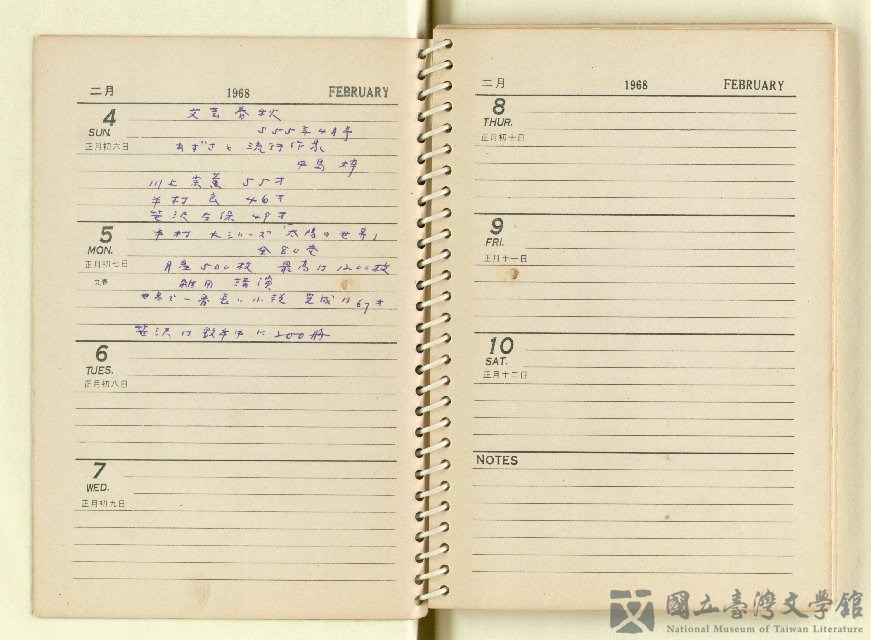 二月 1968 FEBRUARY
4
SUN.
正月初六日
文芸春秋
S55年4月号
あずさと流行作家
中島 梓
川上宗薫 55才
半村良 46才
笹沢左保 49才
5
MON.
正月初七日
立春
半村 大シリーズ「太陽の世界」
全80巻
月産500枚 最高は1200枚
雑用 講演
世界で一番長い小説 完成は67才
笹沢は数年中に200冊
6
TUES.
正月初八日
7
WED.
正月初九日
二月 1968 FEBRUARY
8
THUR.
正月初十日
9
FRI.
正月十一日
10
SAT.
正月十二日
NOTES
國立臺灣文學館
National Museum of Taiwan Literature